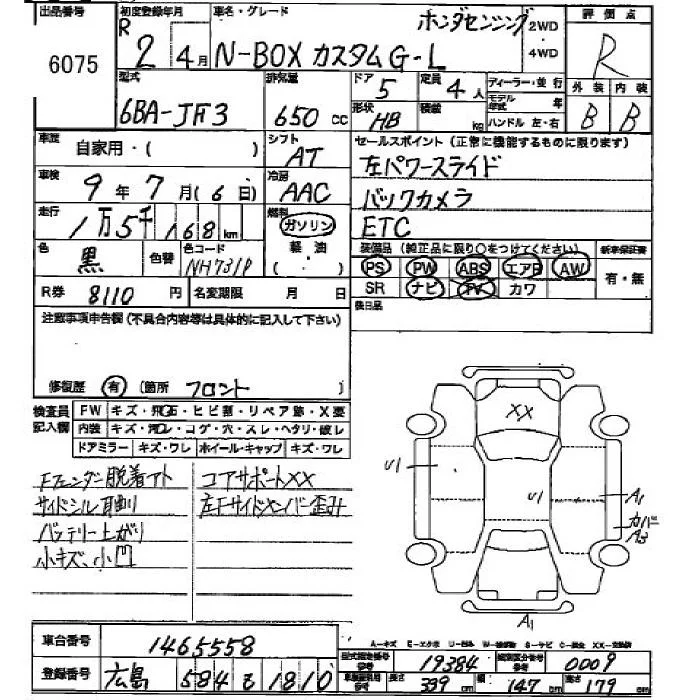 出品番号 初度登録年月 車名・グレード ホンダセンシング 2WD 4WD 評価点
6075 R 2年 4月 N-BOXカスタムG・L R
型式 排気量 ドア 定員 ディーラー・並行 外装 内装
6BA-JF3 650 cc 5 4人 モデル年式 年 B B
形状 HB 積載 kg ハンドル 左・右
車歴 自家用・( ) シフト AT セールスポイント(正常に機能するものに限ります)
左パワースライド
車検 9年7月(6日) 冷房 AAC バックカメラ
走行 1万5千168km 燃料 ガソリン ETC
軽・油 (・)
色 黒 色替 色コード NH731P
装備品(純正品に限り○をつけてください) 新車保証書
PS PW ABS エアB AW 有・無
SR ナビ TV カワ
R券 8110円 名変期限 月 日 後日品
注意事項申告欄(不具合内容等は具体的に記入して下さい)
修復歴 有 (箇所 フロント )
検査員記入欄 FW キズ・飛石・ヒビ割・リペア跡・X要
内装 キズ・汚レ・コゲ・穴・スレ・ヘタリ・破レ
ドアミラー キズ・ワレ ホイール・キャップ キズ・ワレ
Fフェンダー脱着アト コアサポートXX
サイドシル 左Fサイドメンバー歪み
バッテリー上がり
小キズ、小凹
XX
U1
U1
A1
カバー
A3
A1
A-キズ E-エクボ U-凹み W-補修跡 S-サビ C-腐食 XX-交換済
車台番号 1465558
型式指定番号 参考 19384 類別区分番号 参考 0009
登録番号 広島 584 る 1810
参考 長さ 339 cm 幅 147 cm 高さ 179 cm